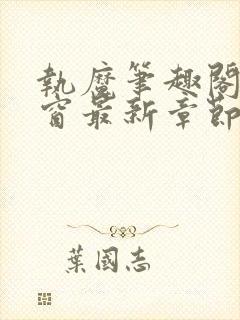 執魔筆趣閣
窗最新章節
葉國志